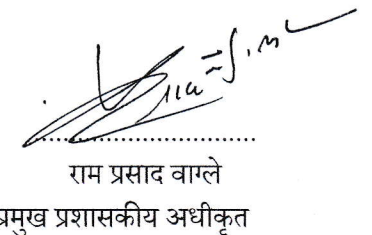 राम प्रसाद वाग्ले
प्रमुख प्रशासकीय अधीकृत